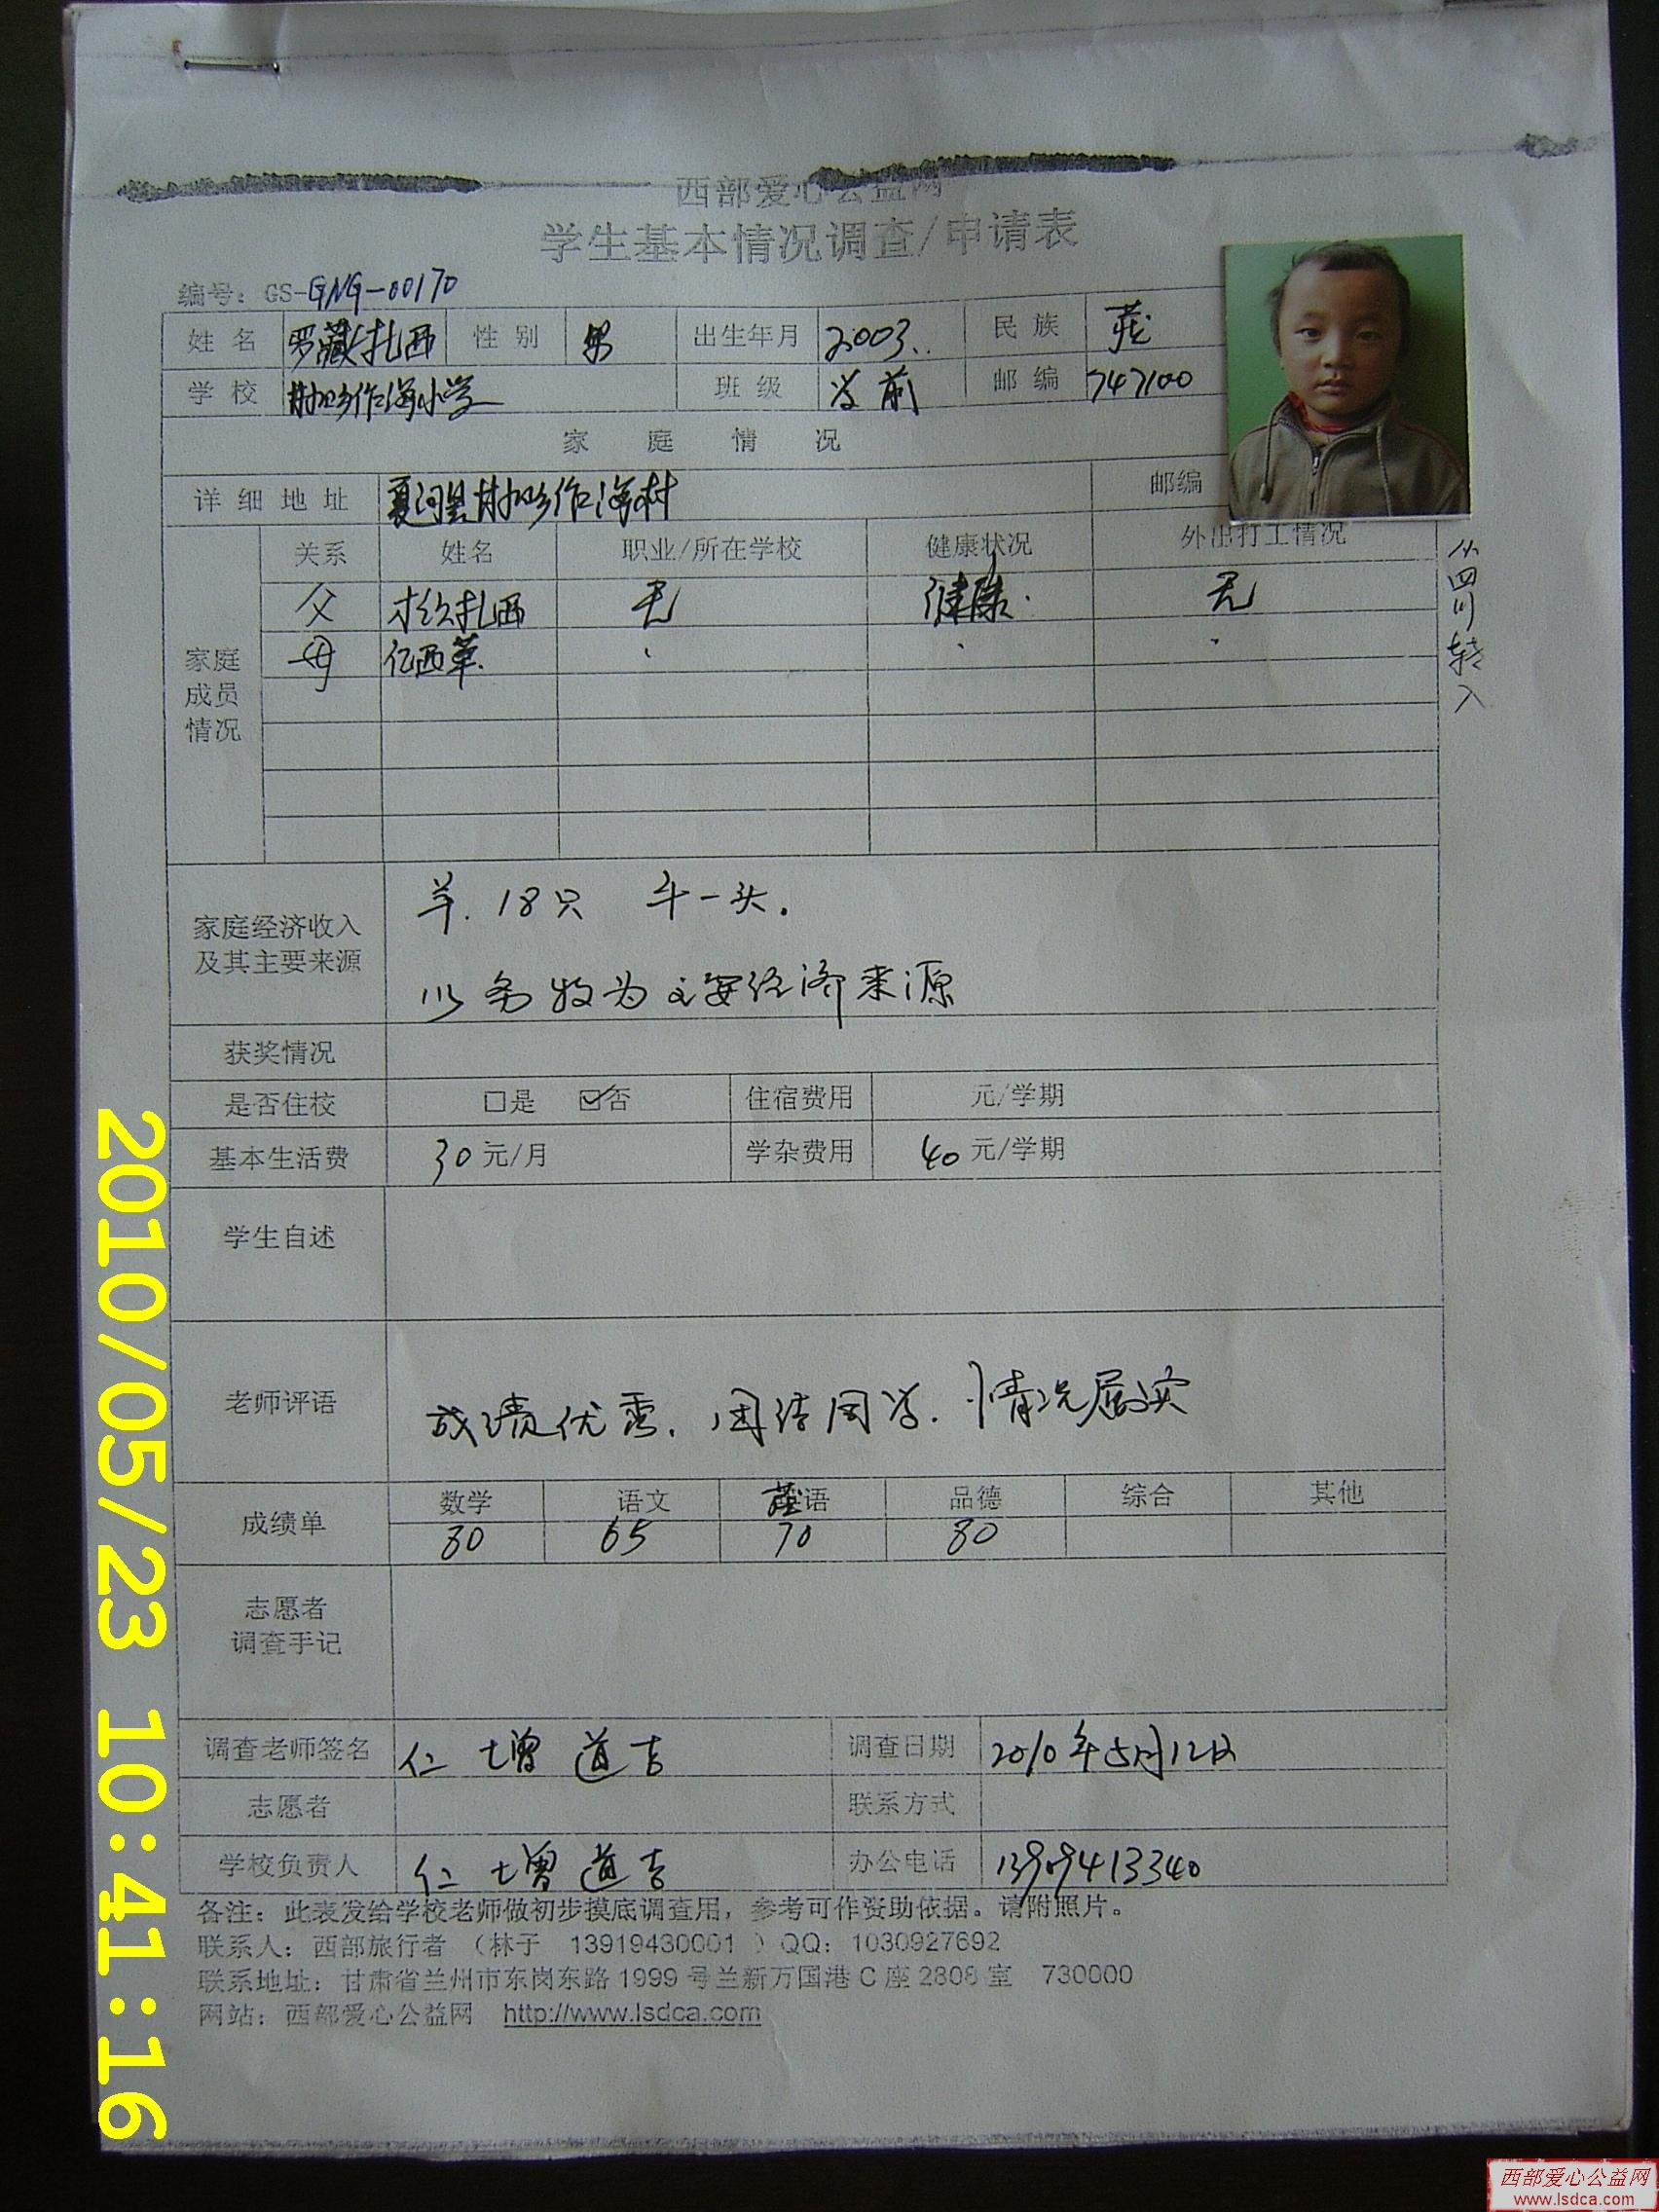 西部爱心公益网
学生基本情况调查/申请表
编号：GS-GNG-00170
姓名 罗藏扎西 性别 男 出生年月 2003. 民族 藏
学校 作海小学 班级 学前 邮编 747100
家庭情况
详细地址 夏河县 作海村 邮编
关系 姓名 职业/所在学校 健康状况 外出打工情况
从四川转入
父 扎西 无 健康 无
家庭成员情况
母
家庭经济收入及其主要来源
羊.18只 牛一头.
以务牧为主要经济来源
获奖情况
是否住校 □是 ☑否 住宿费用 元/学期
基本生活费 30元/月 学杂费用 40元/学期
学生自述
老师评语 成绩优秀.团结同学.情况属实
成绩单 数学 语文 藏语 品德 综合 其他
80 65 70 80
志愿者
调查手记
调查老师签名 仁增道吉 调查日期 2010年5月12日
志愿者 联系方式
学校负责人 仁增道吉 办公电话
备注：此表发给学校老师做初步摸底调查用，参考可作资助依据。请附照片。
联系人：西部旅行者 （林子 13919430001 ）QQ：1030927692
联系地址：甘肃省兰州市东岗东路1999号兰新万国港C座2808室 730000
网站：西部爱心公益网 http://www.lsdca.com
2010/05/23 10:41:16
西部爱心公益网
www.lsdca.com